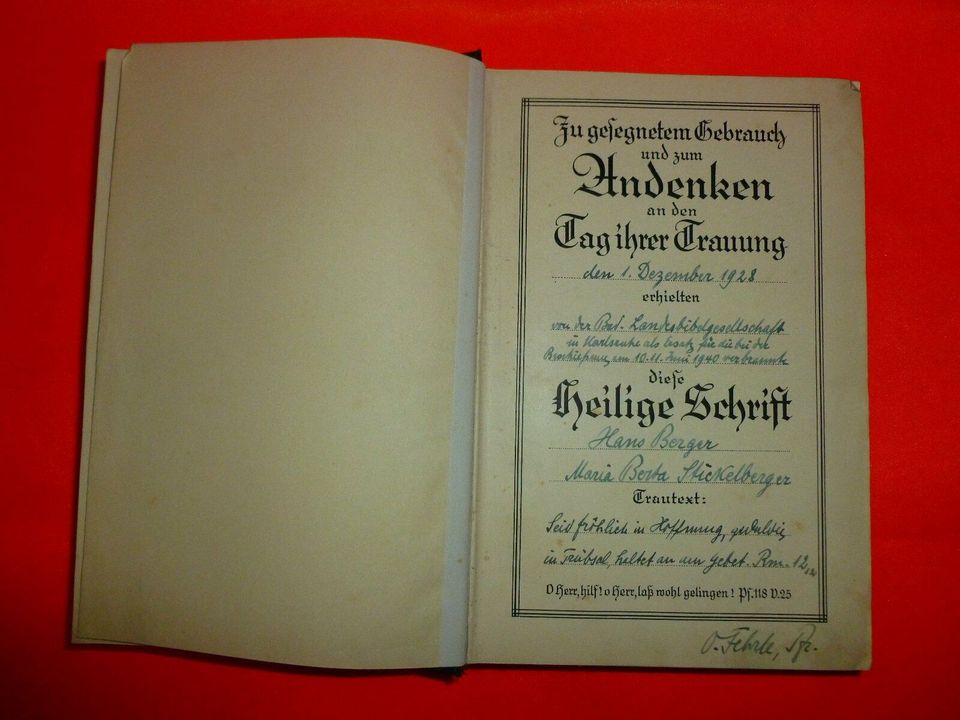 Zu gesegnetem Gebrauch
und zum
Andenken
an den
Tag ihrer Trauung
den 1. Dezember 1928
erhielten
von der Bad. Landesbibelgesellschaft
in Karlsruhe als Ersatz für die bei der
Beschießung am 10.-11. Juni 1940 verbrannte
diese
Heilige Schrift
Hans Berger
Maria Berta Stickelberger
Trautext:
Seid fröhlich in Hoffnung, geduldig
in Trübsal, haltet an am Gebet. Rm. 12,12
O Herr, hilf! o Herr, laß wohl gelingen! Ps. 118 V. 25
O. Fehrle, Pfr.